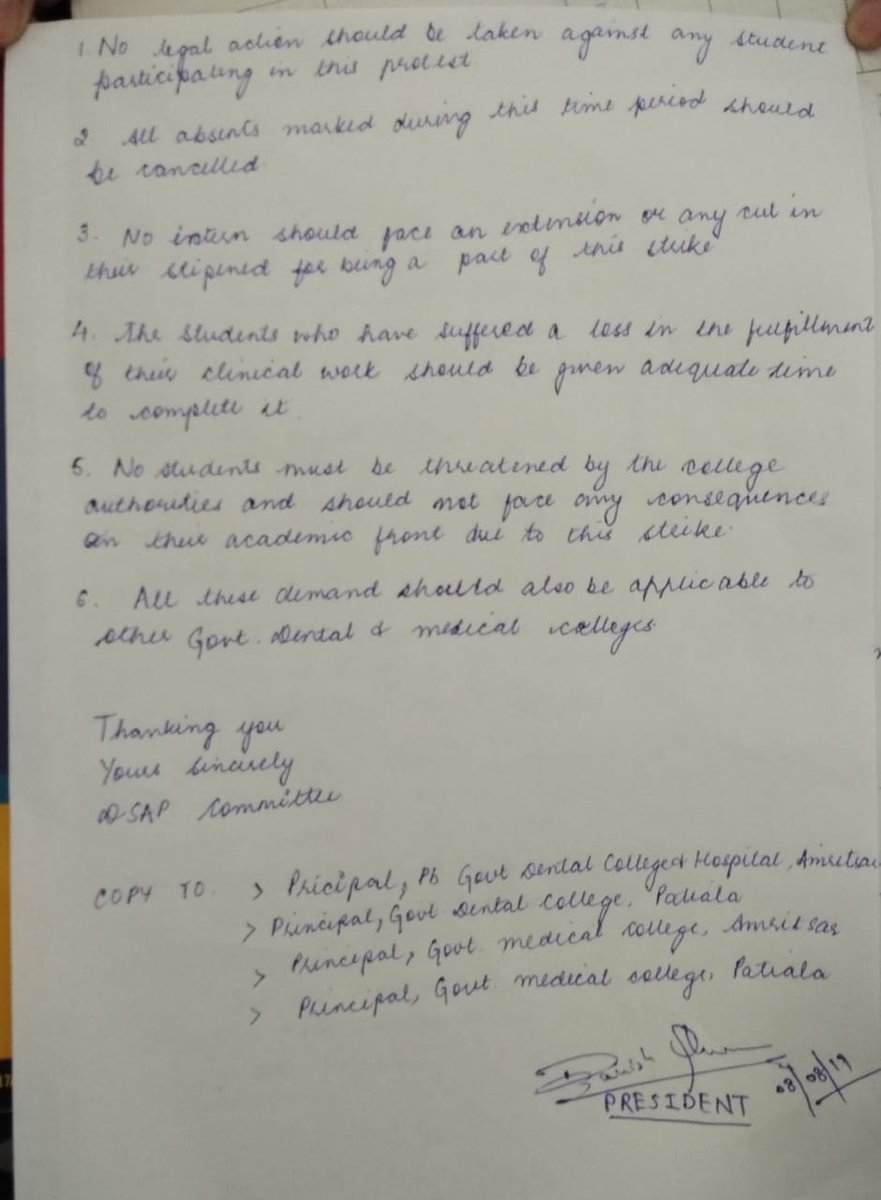 1. No legal action should be taken against any student
participating in this protest
2 All absents marked during this time period should
be cancelled.
3. No intern should face an extension or any cut in
their stipened for being a part of this strike
4. The students who have suffered a loss in the fulfillment
of their clinical work should be given adequate time
to complete it.
5. No students must be threatened by the college
authorities and should not face any consequences
on their academic front due to this strike.
6. All these demand should also be applicable to
other Govt. Dental & medical colleges
Thanking you
Yours sincerely
DSAP Committee
COPY TO. > Pricipal, Pb Govt Dental College & Hospital, Amritsar
> Principal, Govt Dental College, Patiala
> Principal, Govt. medical college, Amritsar
> Principal, Govt. medical college, Patiala
08/08/19
PRESIDENT